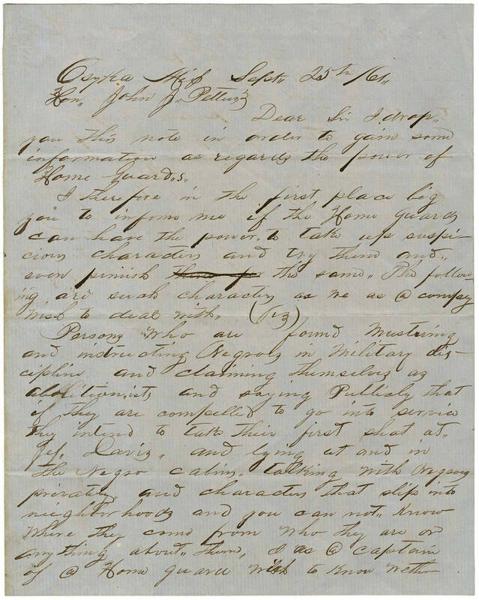 Osyka Miss Sept 25th /61.
Hon, John J. Pettus,
Dear Sir I drop
you this note in order to gain some
information as regards the power of
Home guards.
I therefore in the first place beg
you to inform me if the Home guards
can have the power to take up suspi-
cious characters and try them and
even punish the same. The follow-
ing are such characters as we as @ company
wish to deal with. (viz)
Persons who are found Mustering
and instructing Negroes in Military dis-
cipline and claiming themselves as
abolitionists and saying Publicly that
if they are compelled to go into service
they intend to take their first shot at
Jef. Davis. and lying at and in
the Negro cabins talking with Negroes
privately and characters that slip into
neighborhoods and you can not know
where they come from who they are or
any thing about them, I as @ captain
of @ Home guard wish to know wether